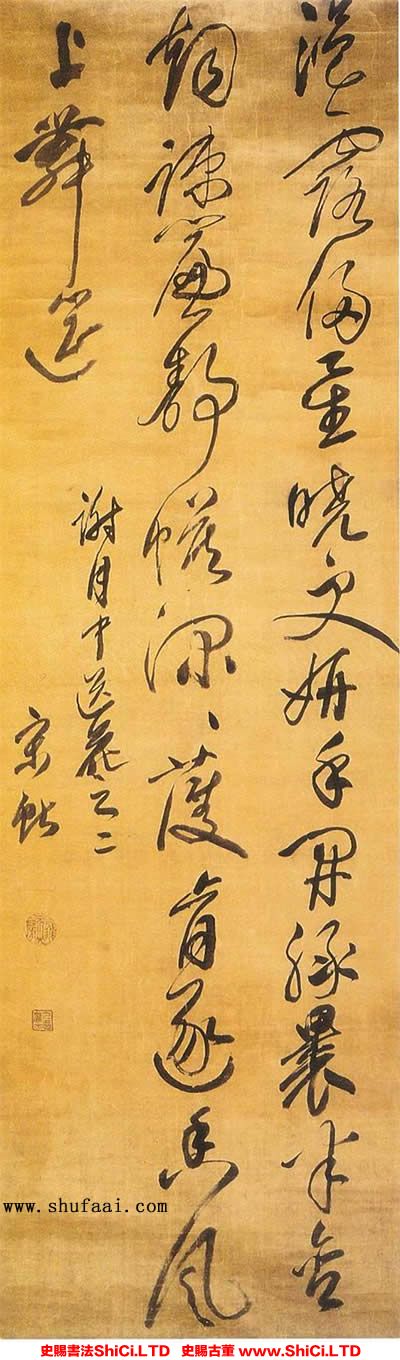 浥露侵星曉更妍手開裹半含
烟疎簾靜幌深深護肯逐香風
上舞筵
謝月中送花之二
宋
www.shufaai.com
史賜書法ShiCi.LTD 史賜古董 www.ShiCi.LTD